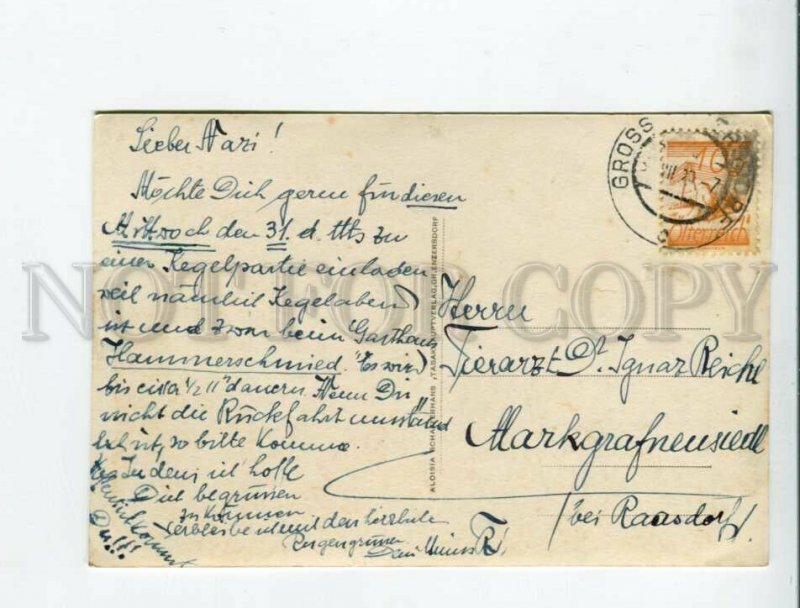 Lieber Nazi!
Möchte Dich gerne für diesen
Mittwoch den 31. d. Mts zu
einer Kegelpartie einladen
weil nämlich Kegelabend
ist und zwar beim Gasthaus
Hammerschmied. Es wird
bis circa 1/2 11h dauern. Wenn Dir
nicht die Rückfahrt umständ
lich ist, so bitte komme.
Indem ich hoffe
Dich begrüssen
zu können
verbleibe ich mit den herzlichsten
Dein
kommst
Du!!!
ALOISIA SCHARMERHANS, TABAKHAUPTVERLAG, GR. ENZERSDORF
GROSS
10
Österreich
Herrn
Tierarzt Dr. Ignaz Reichl
Markgrafneusiedl
bei Raasdorf.
NOT FOR COPY